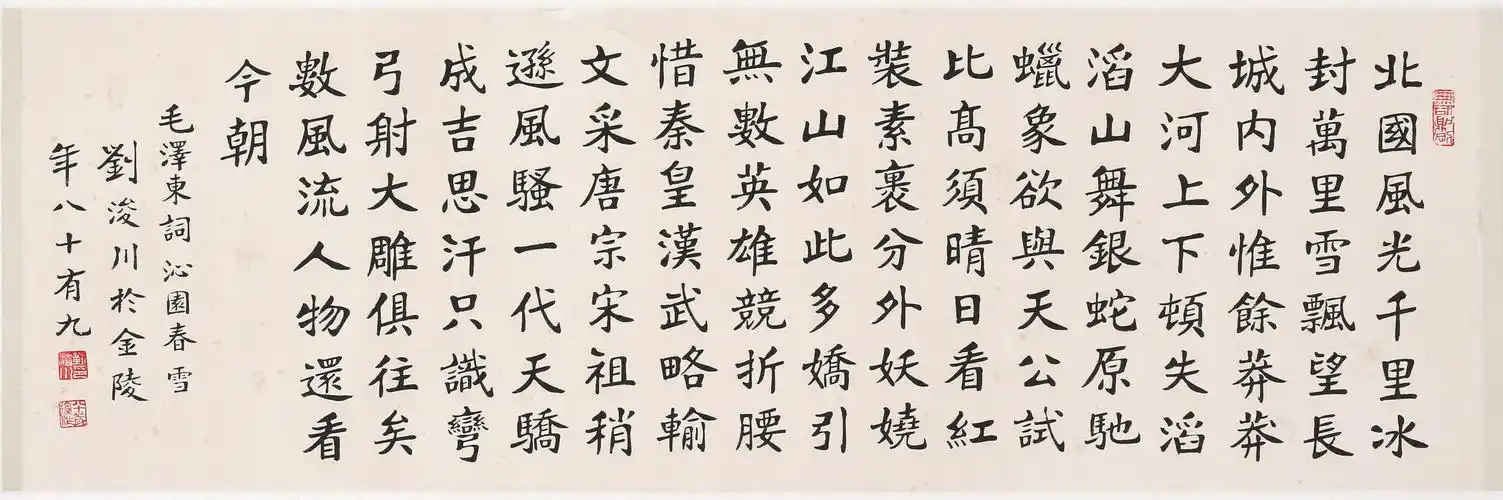 北國風光千里冰
封萬里雪飄望長
城内外惟餘莽莽
大河上下頓失滔
滔山舞銀蛇原馳
蠟象欲與天公試
比髙須晴日看紅
裝素裹分外妖嬈
江山如此多嬌引
無數英雄競折腰
惜秦皇漢武略輸
文采唐宗宋祖稍
遜風騷一代天驕
成吉思汗只識彎
弓射大雕俱往矣
數風流人物還看
今朝
毛澤東詞沁園春雪
劉浚川於金陵
年八十有九